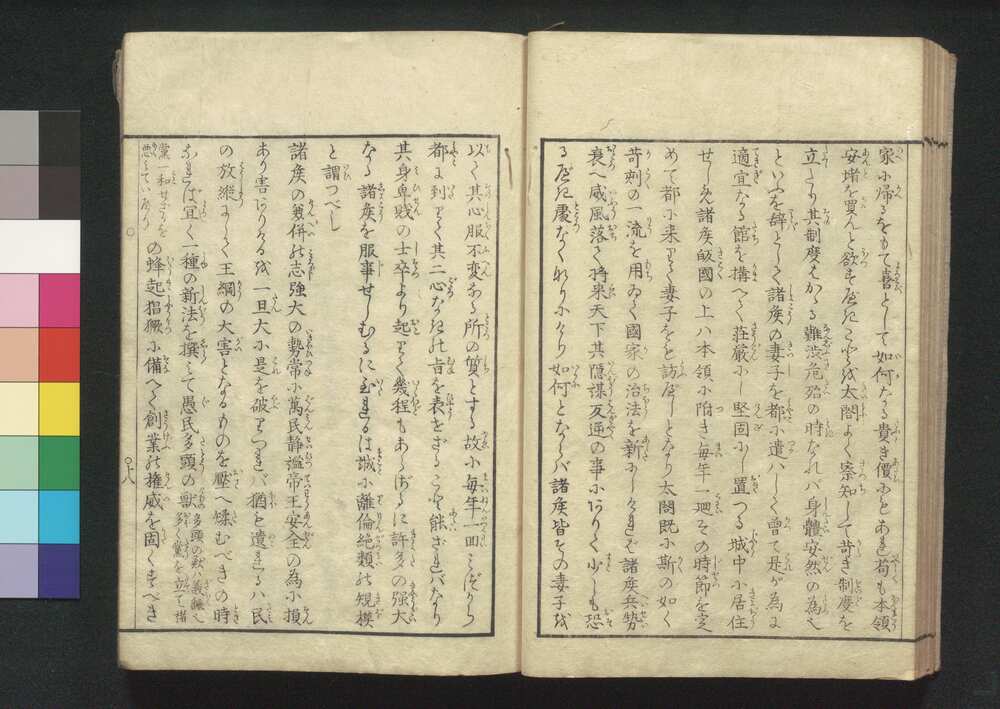 家に帰るをもて喜として如何なる貴き價なりとあれ荀も本領
安堵を買んと欲すべきこゝを太閤よく察知して苛き制度を
立たり其制度はかゝる難渋危殆の時なれバ身體安然の為
といふを辞として諸侯の妻子を都に遣ハしく曽て是が為に
適宜なる館を搆へて荘厳にし堅固にし置つる城中に居住
せしめ諸侯皈國の上ハ本領に附き毎年一廻その時節を定
めて都に来りて妻子をとひ訪べしとなり太閤既に斯の如く
苛刻の一流を用ゐて國家の治法を新にしければ諸侯其勢
衰へ威風落て将来天下其隠謀互通の事にありて少しも恐
る べき慶なくなりにけり如何となれバ諸侯皆その妻子を
以て其心服不変なる所の質とする故に毎年一回みづから
都に到りて其二心なきの旨を表せざること能ざれバなり
其身卑賤の士卒より起りて幾程もあらざるに許多の强大
なる諸侯を服事せしむるに至れるは誠に離倫絶類の規模
と謂つべし
諸侯の兼併の志强大の勢常に萬民静謐帝王安全の為に損
あり害ありけるを一旦大に是を破りつれバ猶も遺れるハ民
の放縦にして王綱の大害となるものを壓へ矯むべきの時
なれば宜く一種の新法を撰て愚民多頭の獣
多頭の獣ハ義
多く黨を立て諸
黨一和せざるを
いふなり
の蜂起猖獗に備へて創業の権威を固くすべき